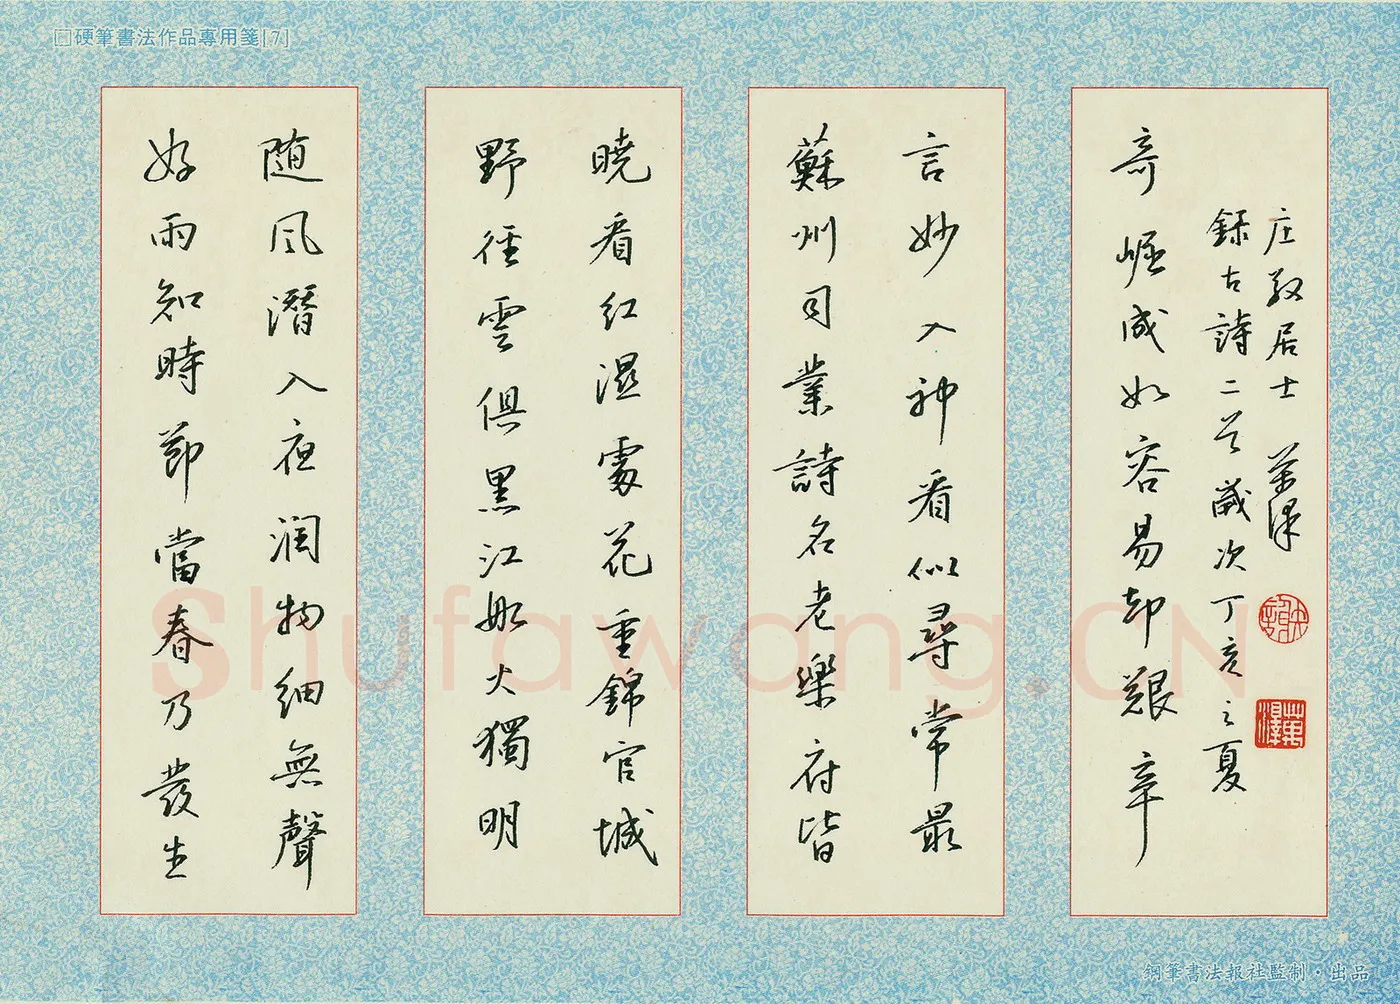 [□硬筆書法作品專用箋[7]
好雨知時節當春乃發生
随風潛入夜润物細無聲
野徑雲俱黑江船火獨明
曉看紅濕處花重錦官城
蘇州司業詩名老樂府皆
言妙入神看似尋常最
奇崛成如容易却艱辛
録古詩二首歲次丁亥之夏
庄敬居士
Shufawang.CN
鋼筆書法報社監制·出品